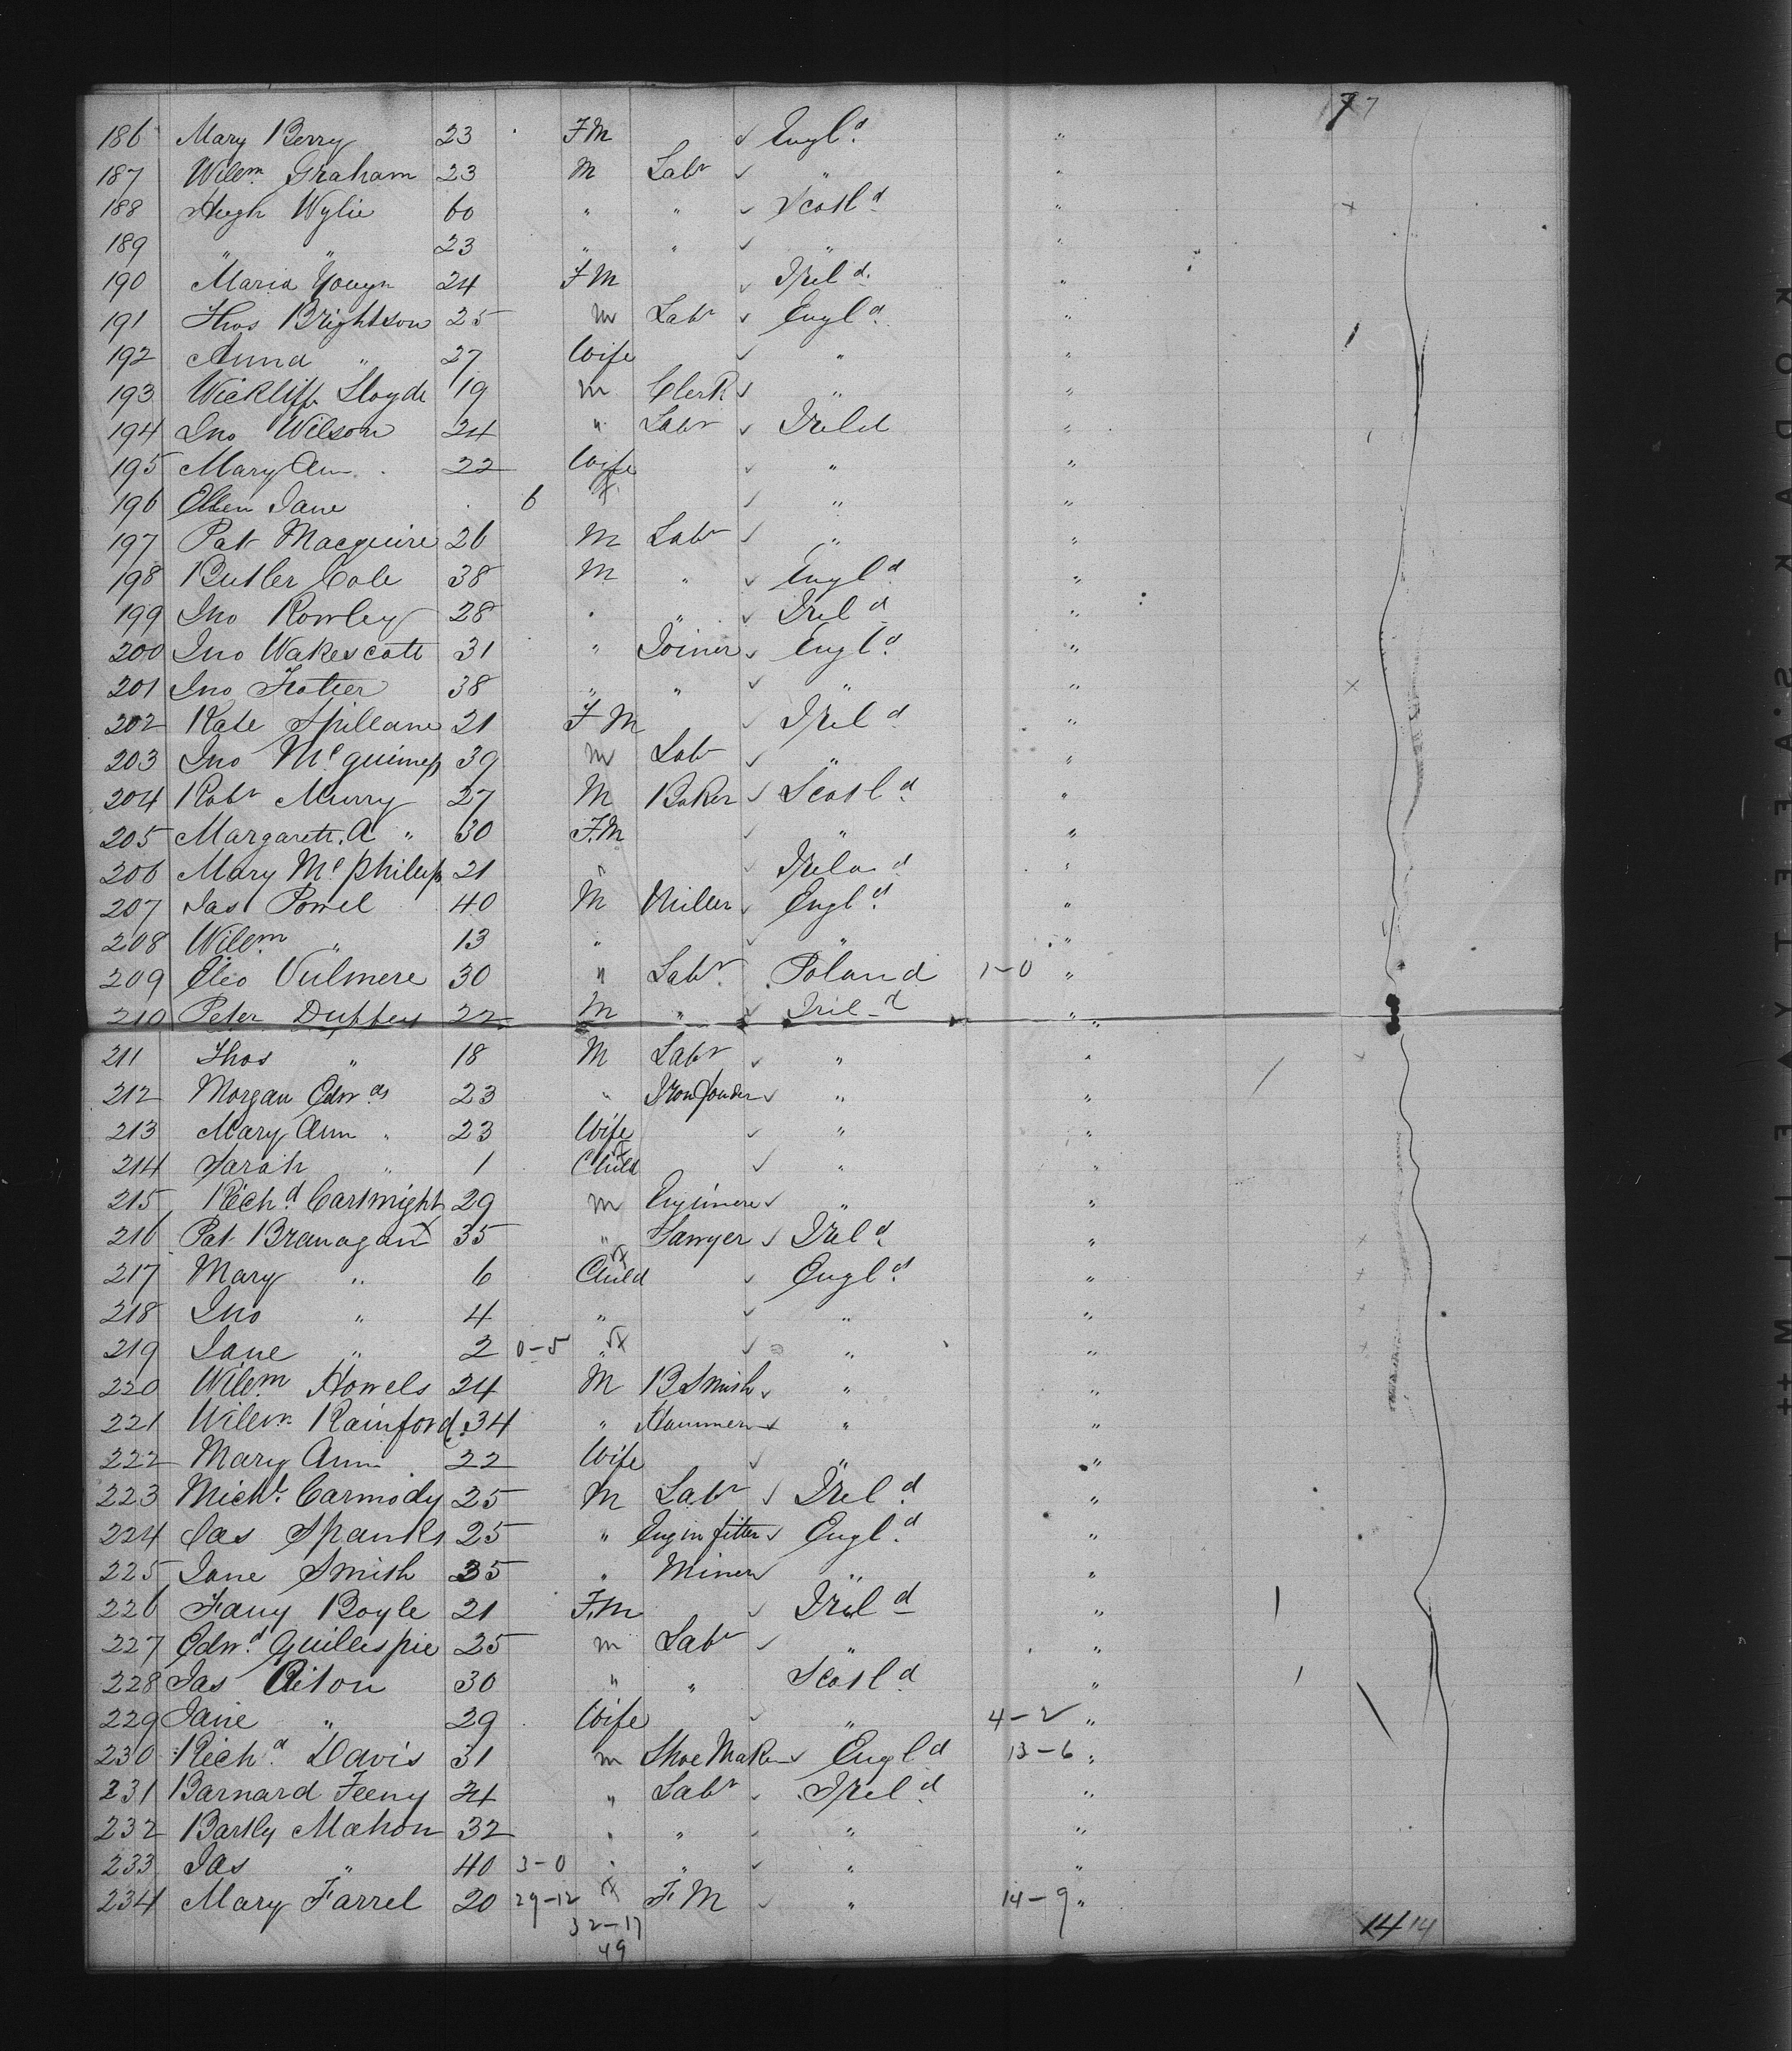 7 7
186 Mary Berry 23 F M Engl d
187 Wilm Graham 23 M Labr "
188 Hugh Wylie 60 " " Scotl d "
189 " " 23 " " " "
190 Maria 24 F M Irel d "
191 Thos Brightson 25 M Labr Engl d "
192 Anna " 27 Wife " "
193 Wickliff Lloyde 19 m Clerk " "
194 Jno Wilson 24 " Labr Ireld "
195 Mary Ann 22 Wife " "
196 Ellen Jane 6 " "
197 Pat Macguire 26 M Labr " "
198 Butler Cole 38 M " Engl d "
199 Jno Rowley 28 " " Irel d "
200 Jno Wakescott 31 " Joiner Engl d "
201 Jno 38 " " " "
202 Kate Spillane 21 F M Irel d "
203 Jno Mc guiness 39 M Lab " "
204 Robt Murry 27 M Baker Scotl d "
205 Margarett. A " 30 F.M " "
206 Mary Mc Philips 21 " Irelan d "
207 Jas Powel 40 M Miller Engl d "
208 Wilm " 13 " " "
209 Vulmere 30 " Labr Poland 1-0 "
210 Peter Duffey 22 M " Irel d "
211 Thos " 18 M Labr " "
212 Morgan Edwds 23 " Ironfounder " "
213 Mary Ann " 23 Wife " "
214 Sarah " 1 Child " "
215 Richd Cartwright 29 m Engineer " "
216 Pat Branagan 35 " Sawyer Irel d "
217 Mary " 6 Child Engl d "
218 Jno " 4 " " "
219 Jane " 2 0-5 " " "
220 Wilm Howels 24 M B Smith " "
221 Wilm Rainford 34 " " "
222 Mary Ann 22 Wife " "
223 Michl Carmody 25 M Labr Irel d "
224 Jas Spanks 25 " Engin fitter Engl d "
225 Jane Smith 35 " Miner " "
226 Fany Boyle 21 F.M Irel d "
227 Edwd Guillespie 25 m Labr " "
228 Jas Aiton 30 " " Scotl d "
229 Jane " 29 Wife " 4-2 "
230 Richd Davis 31 m Shoe Maker Engl d 13-6 "
231 Barnard Feeny 24 " Labr Irel d "
232 Bartly Mahon 32 " " " "
233 Jas " 40 3-0 " " " "
234 Mary Farrel 20 29-12 F M " 14-9 "
32-17
49
14 14
KODAK SAFETY FILM